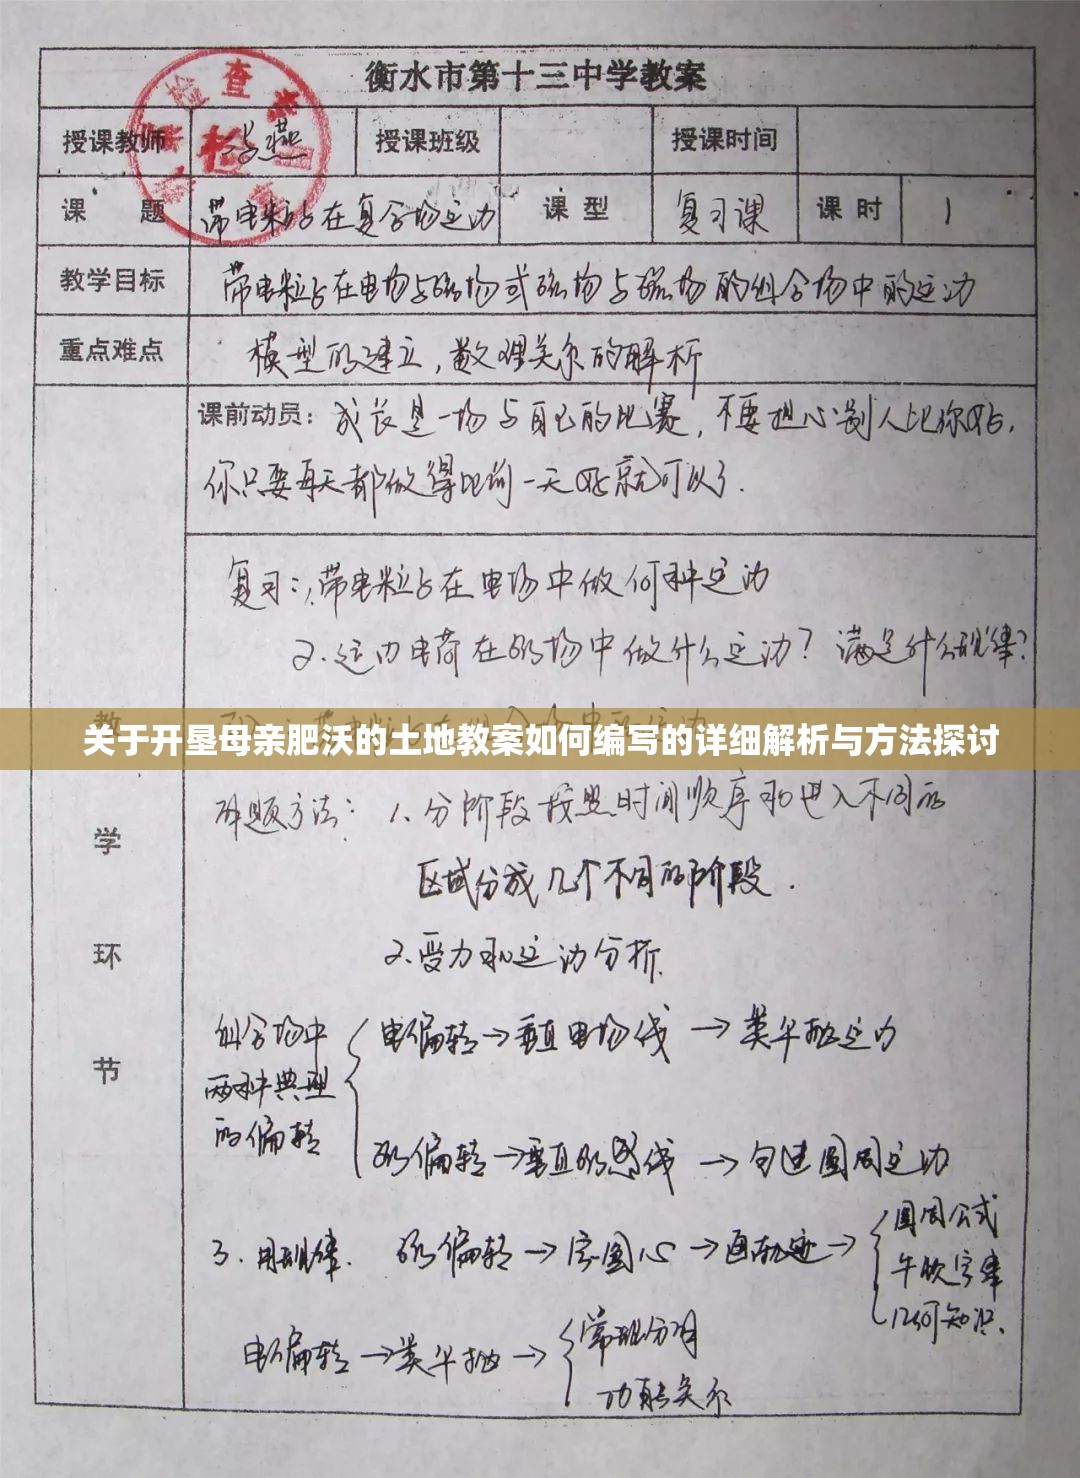 衡水市第十三中学教案
检查
授课教师 燕 授课班级 授课时间
课 题 带电粒子在复合场运动 课 型 复习课 课 时 1
教学目标 带电粒子在电场与磁场或磁场与磁场的组合场中的运动
重点难点 模型的建立,数理关系的解析
课前动员:成长是一场与自己的比赛,不要担心别人比你好,
你只要每天都做得比前一天好就可以了.
复习:1.带电粒子在电场中做何种运动
2.运动电荷在磁场中做什么运动?满足什么规律?
教
关于开垦母亲肥沃的土地教案如何编写的详细解析与方法探讨
解题方法:1.分阶段按照时间顺序和进入不同的
学
区域分成几个不同的阶段.
环
2.受力和运动分析.
组合场中
两种典型
的偏转
电偏转→垂直电场线→类平抛运动
节
磁偏转→垂直磁感线→匀速圆周运动
3.用规律. 磁偏转→定圆心→画轨迹→
圆周公式
牛顿定律
几何知识.
电偏转→类平抛→
常规分解
功能关系